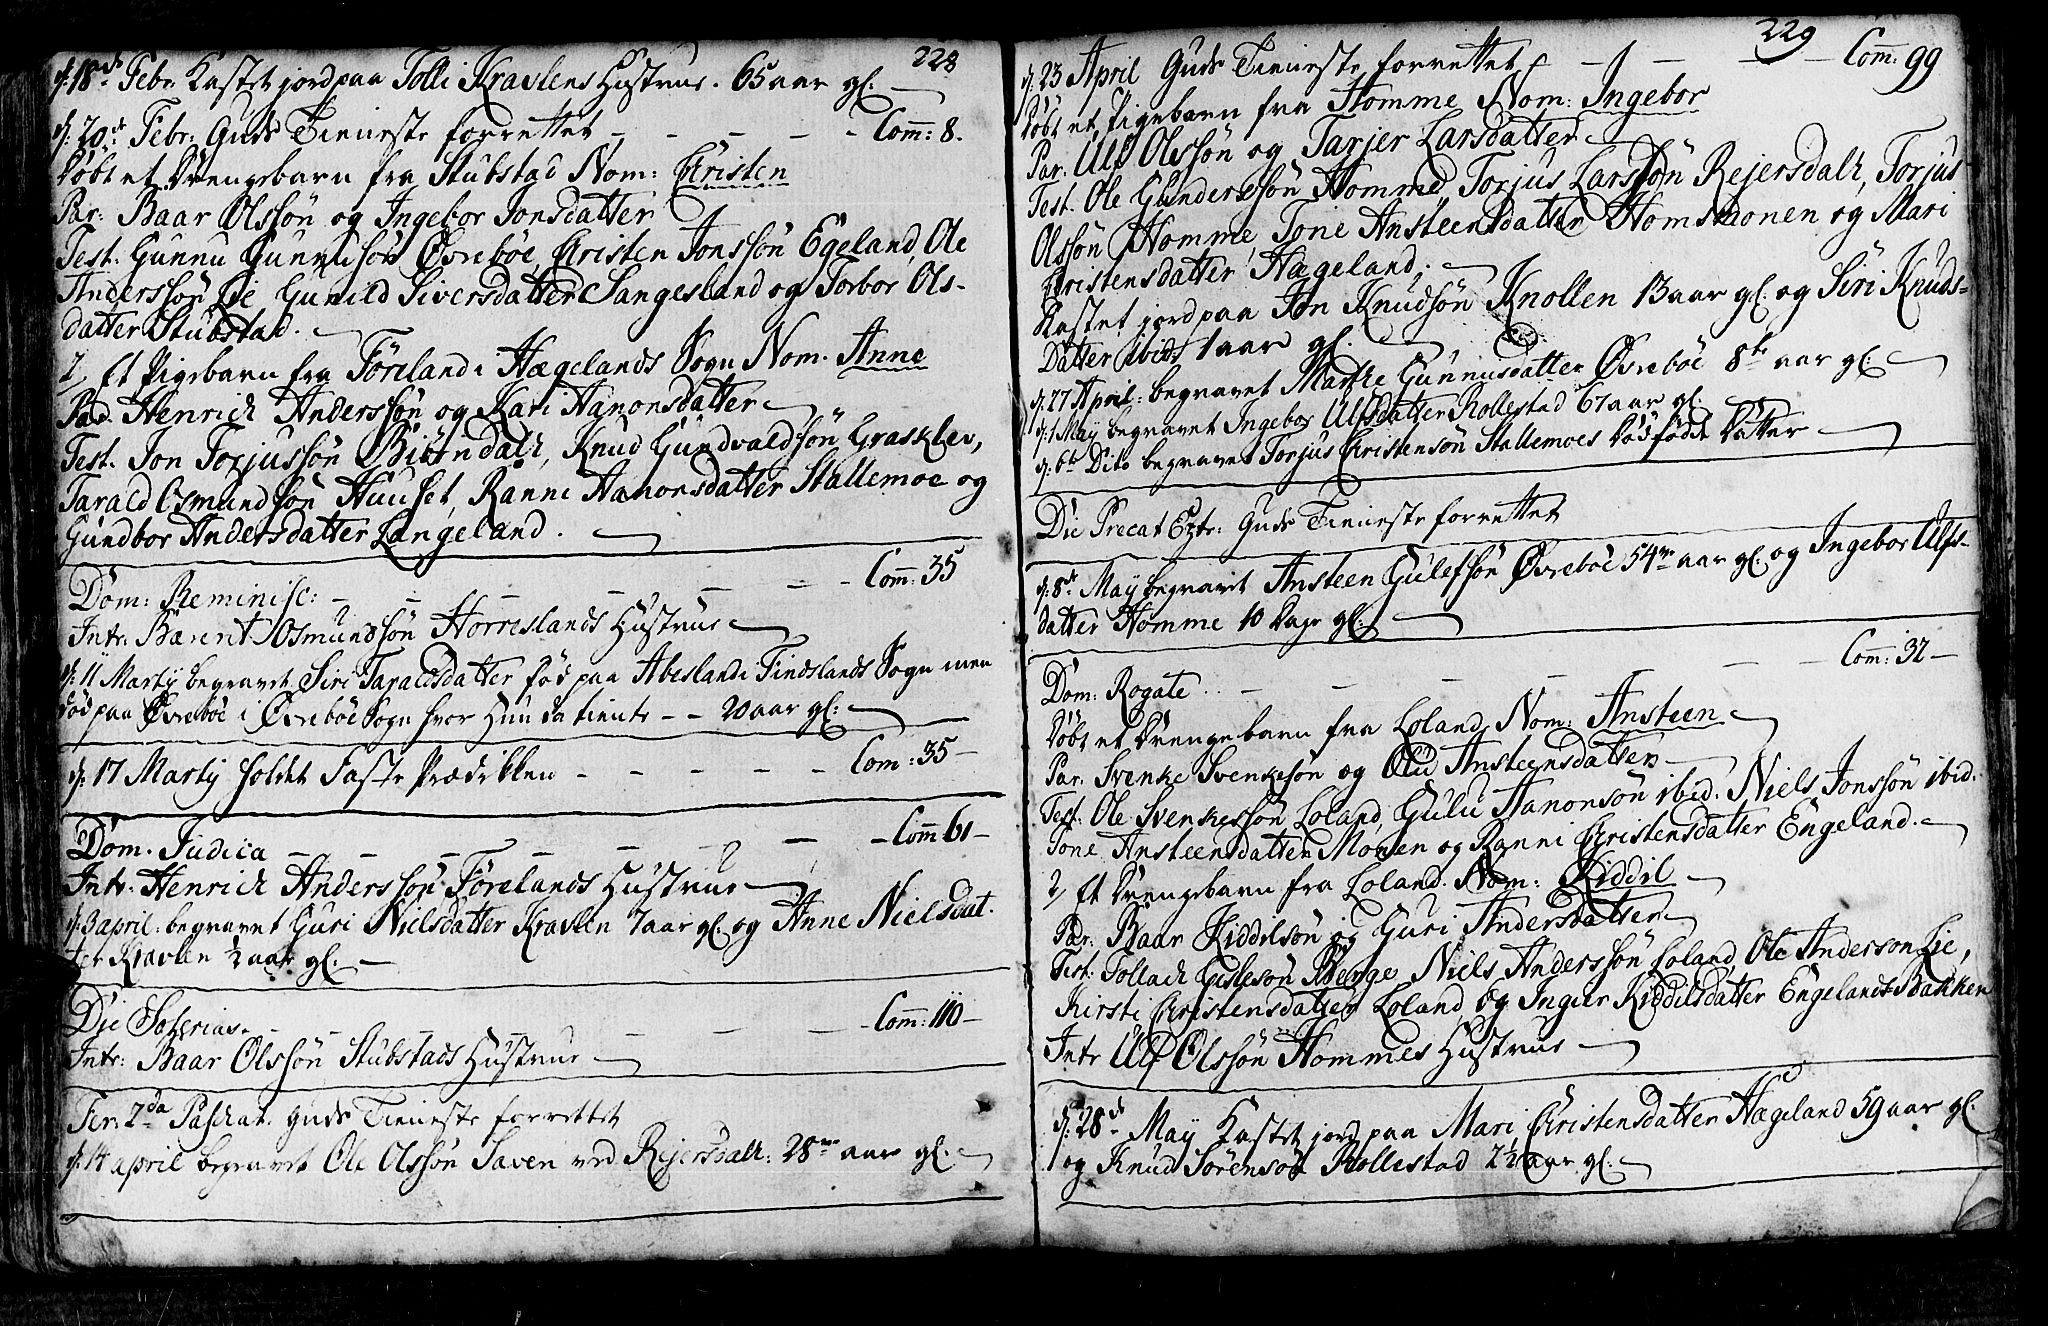 228
d. 18de Febr. Kastet jord paa Tolli Kravlens Hustrue. 65 aar gl.
d. 20de Febr: Guds Tieneste forrettet - - - - - Com̄: 8.
Døbt et Drengebarn fra Stubstad Nom: Christen
Par: Baar Olssön og Ingebor Jonsdatter
Test. Gunnu Gunnusön Øvreböe, Christen Jonssön Egeland, Ole
Anderssön Lie, Gunild Siversdatter Sangesland og Torbor Ols-
datter Stubstad.
2, Et Pigebarn fra Föreland i Hægelands Sogn Nom. Anne
Par. Henrich Anderssön og Kari Aanonsdatter
Test. Jon Torjussön Biörndalh, Knud Gundvaldsön Grasklev,
Tarald Osmundsön Huuset, Ranni Aanonsdatter Stallemoe og
Gundbor Andersdatter Langeland.
Dom: Reminisc: - - - - - - Com̄: 35
Intr: Bærent Osmundsön Horreslands Hustrue
d. 11 Martÿ begravet Siri Taraldsdatter fød paa Abesland i Findslands Sogn men
død paa Øvreböe i Øvreböe Sogn hvor Hun da tiente - - 20 aar gl:
d. 17 Martÿ holdet Faste Prædikken - - - - - Com: 35 -
Dom. Judica - - - - - - - Com̄ 61 -
Intr: Henrich Anderssön Förelands Hustrue
d. 3 april: begravet Guri Nielsdatter Kravlen 7 aar gl. og Anne Nielsdat-
ter Kravlen ½ aar gl. -
Die Soterias. - - - - - - - Com̄: 110 -
Intr: Baar Olssön Stubstads Hustrue
Fer: 2da Paschat. Guds Tieneste forrettet
d. 14 april begravet Ole Olssön Saven ved Reiersdalh: 28 aar gl.
229
d. 23 April Guds Tieneste forrettet - - - - Com̄: 99
Døbt et Pigebarn fra Homme Nom: Ingebor
Par. Ulf Olssön og Tarjer Larsdatter
Test. Ole Gunderssön Homme, Torjus Larssön Rejersdalh, Torjus
Olssön Homme, Tone Ansteensdatter Homsmonen og Mari
Christensdatter Hægeland.
Kastet jord paa Jon Knudsön Knollen 13 aar gl. og Siri Knuds-
Datter ibid. 1 aar gl.
d. 27 April: begravet Marthe Gunnusdatter Øvreböe 8te aar gl:
d. 1 Maÿ begravet Ingebor Ulfsdatter Rollestad 67 aar gl.
d. 6te Dito begravet Torjus Christensön Stallemoes Dødfödde Datter
Die Precat Extr: Guds Tieneste forrettet
d. 8de Maÿ begravet Ansteen Gulefsön Øvreböe 54 aar gl. og Ingebor Ulfs-
datter Homme 10 Dage gl.
Dom: Rogate. - - - - - - Com̄: 32 -
Døbt et Drengebarn fra Loland Nom: Ansteen
Par: Svenke Svenkesön og Olu Ansteensdatter
Test: Ole Svenkessön Loland, Gulu Aanonsön ibid. Niels Jonssön ibid.
Tone Ansteensdatter Monen og Ranni Christensdatter Engeland.
2, Et Drengebarn fra Loland. Nom: Kiddil
Par: Baar Kiddilsön og Guri Andersdatter
Test: Tollach Gislesön Berge, Niels Anderssön Loland, Ole Anderson Lie,
Kirsti Christensdatter Loland, og Inger Kiddilsdatter Engelands Bakken
Intr Ulf Olssön Hommes Hustrue
d. 28de Maÿ Kastet jord paa Mari Christensdatter Hægeland 59 aar gl.
og Knud Sörensön Rollestad 2½ aar gl.